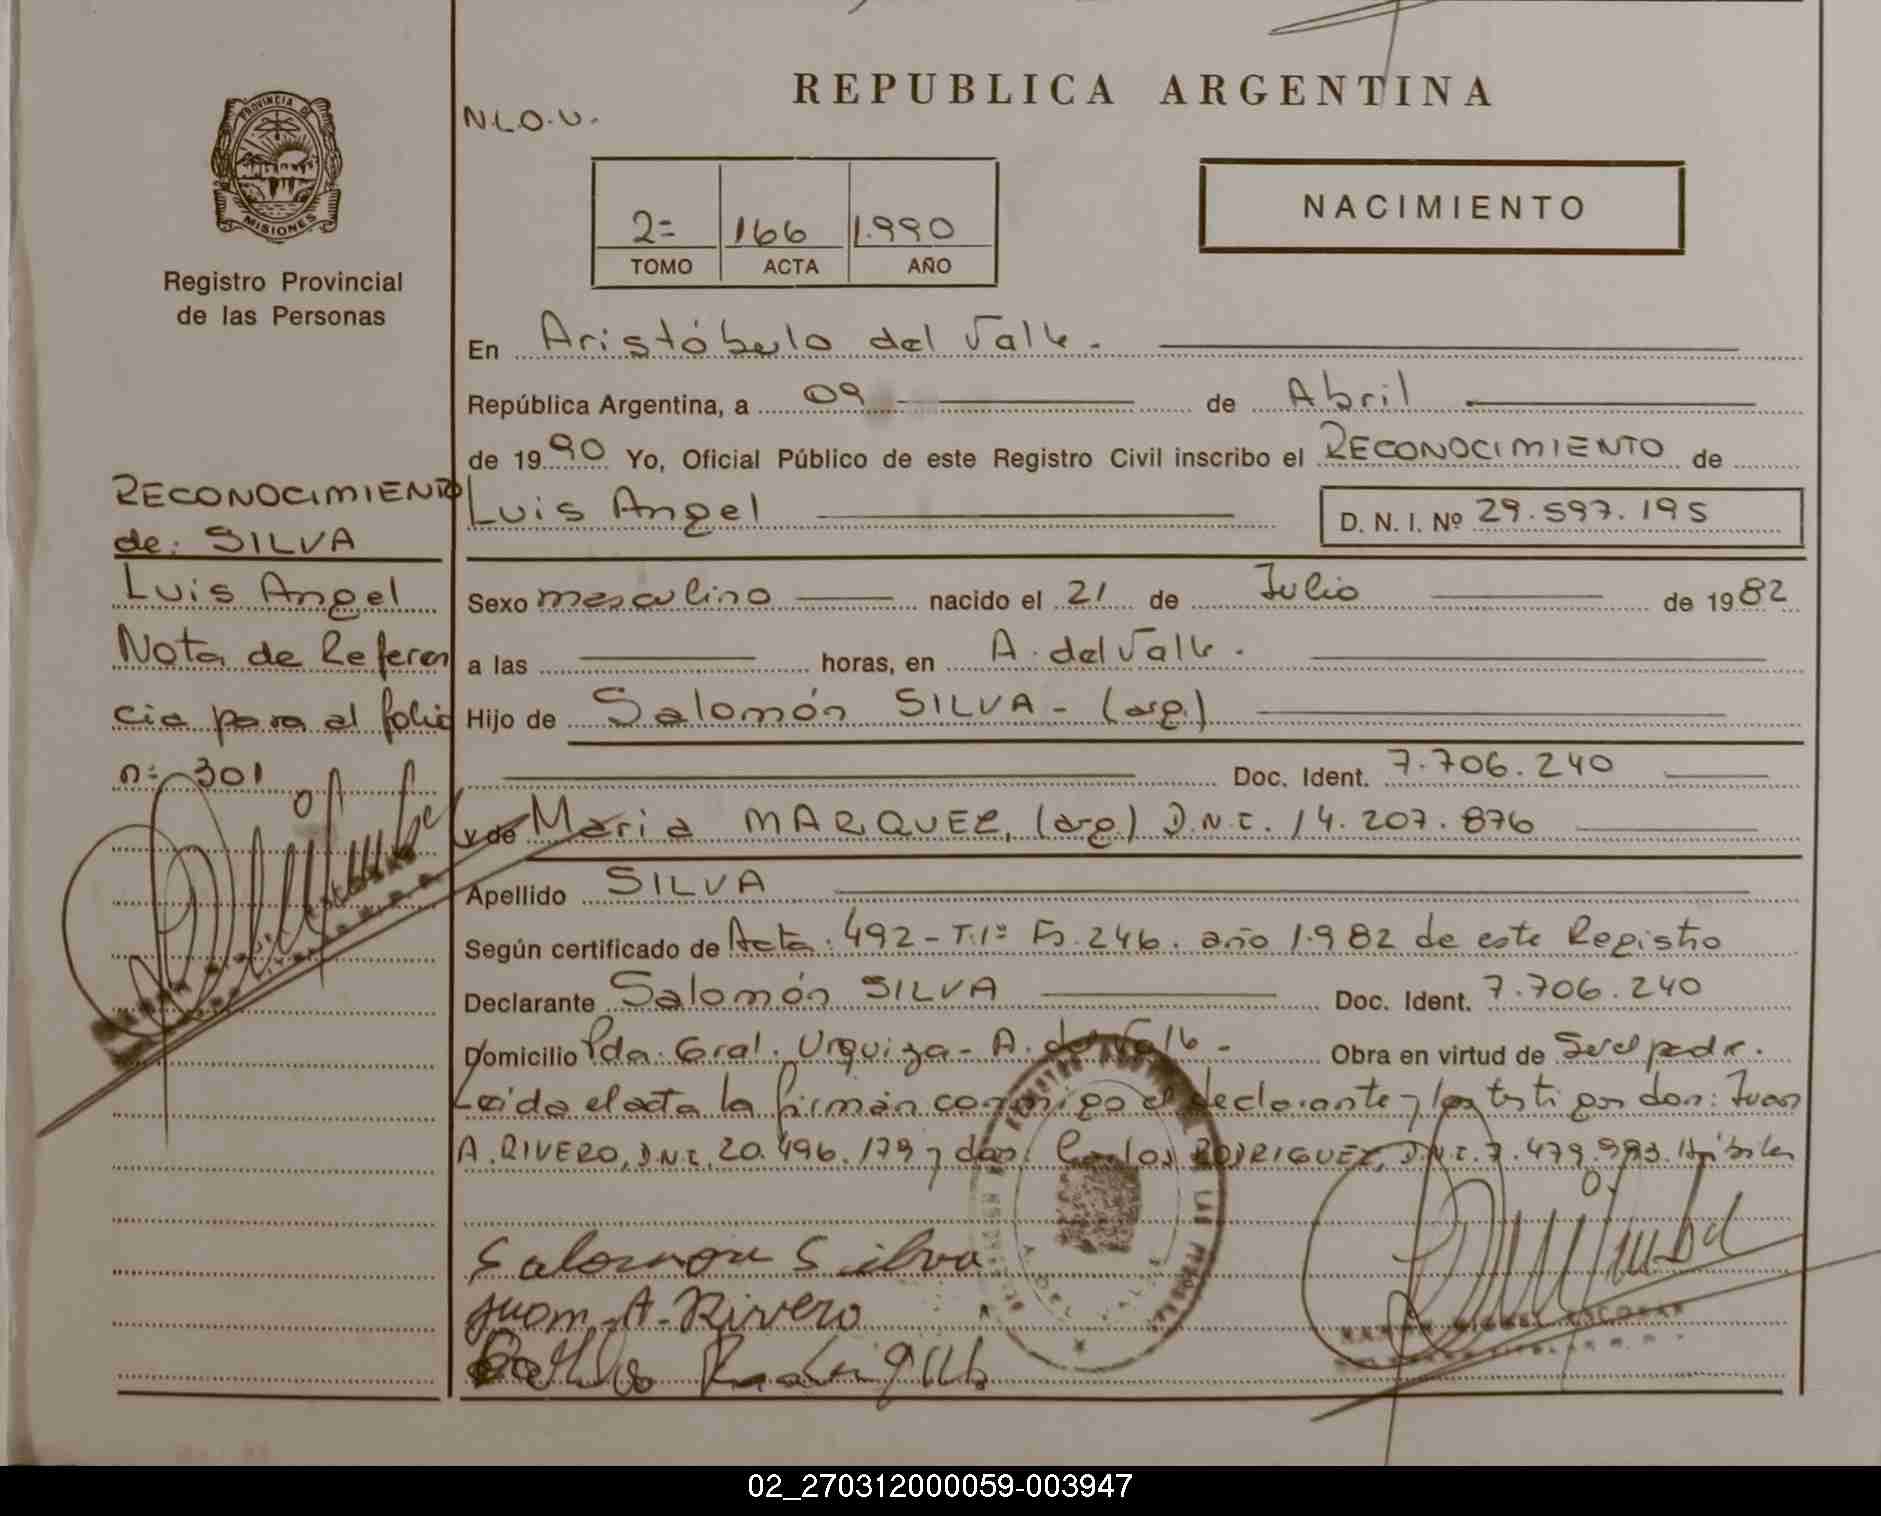 REPUBLICA ARGENTINA
PROVINCIA DE
MISIONES
Registro Provincial
de las Personas
N.L.O.U.
2= 166 1.990
TOMO ACTA AÑO
NACIMIENTO
En Aristóbulo del Valle.
República Argentina, a 09 de Abril
de 1990 Yo, Oficial Público de este Registro Civil inscribo el RECONOCIMIENTO de
Luis Angel D. N. I. Nº 29.597.195
Sexo masculino nacido el 21 de Julio de 1982
a las horas, en A. del Valle.
Hijo de Salomón SILVA - (arg.)
Doc. Ident. 7.706.240
y de Maria MARQUEZ, (arg.) D.N.I. 14.207.876
Apellido SILVA
Según certificado de Acta: 492 - T.1º Fº.246. año 1.982 de este Registro
Declarante Salomón SILVA Doc. Ident. 7.706.240
Domicilio Pda. Gral. Urquiza - A. del Valle - Obra en virtud de Ser el padre.
Leida el acta la firman conmigo el declarante y los testigos don: Juan
A. RIVERO, D.N.I. 20.496.179 y don: Carlos RODRIGUEZ, D.N.I. 7.479.993. Hábiles
Salomon Silva
Juan-A-Rivero
RECONOCIMIENTO
de: SILVA
Luis Angel
Nota de Referen
cia para el folio
nº 301
02_270312000059-003947